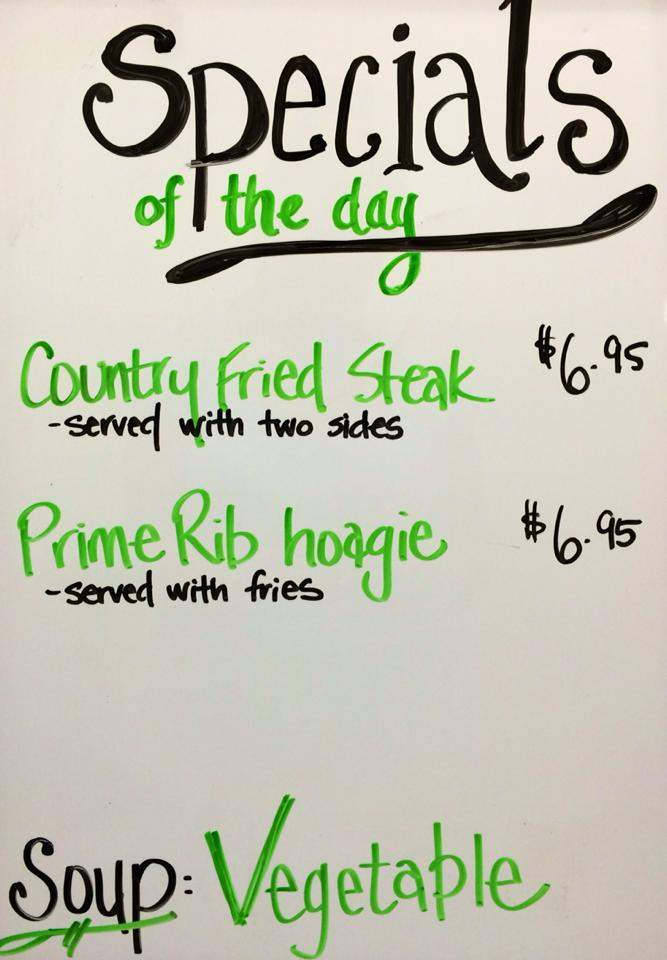 Specials
of the day
Country Fried Steak $6.95
-served with two sides
Prime Rib hoagie $6.95
-served with fries
Soup: Vegetable